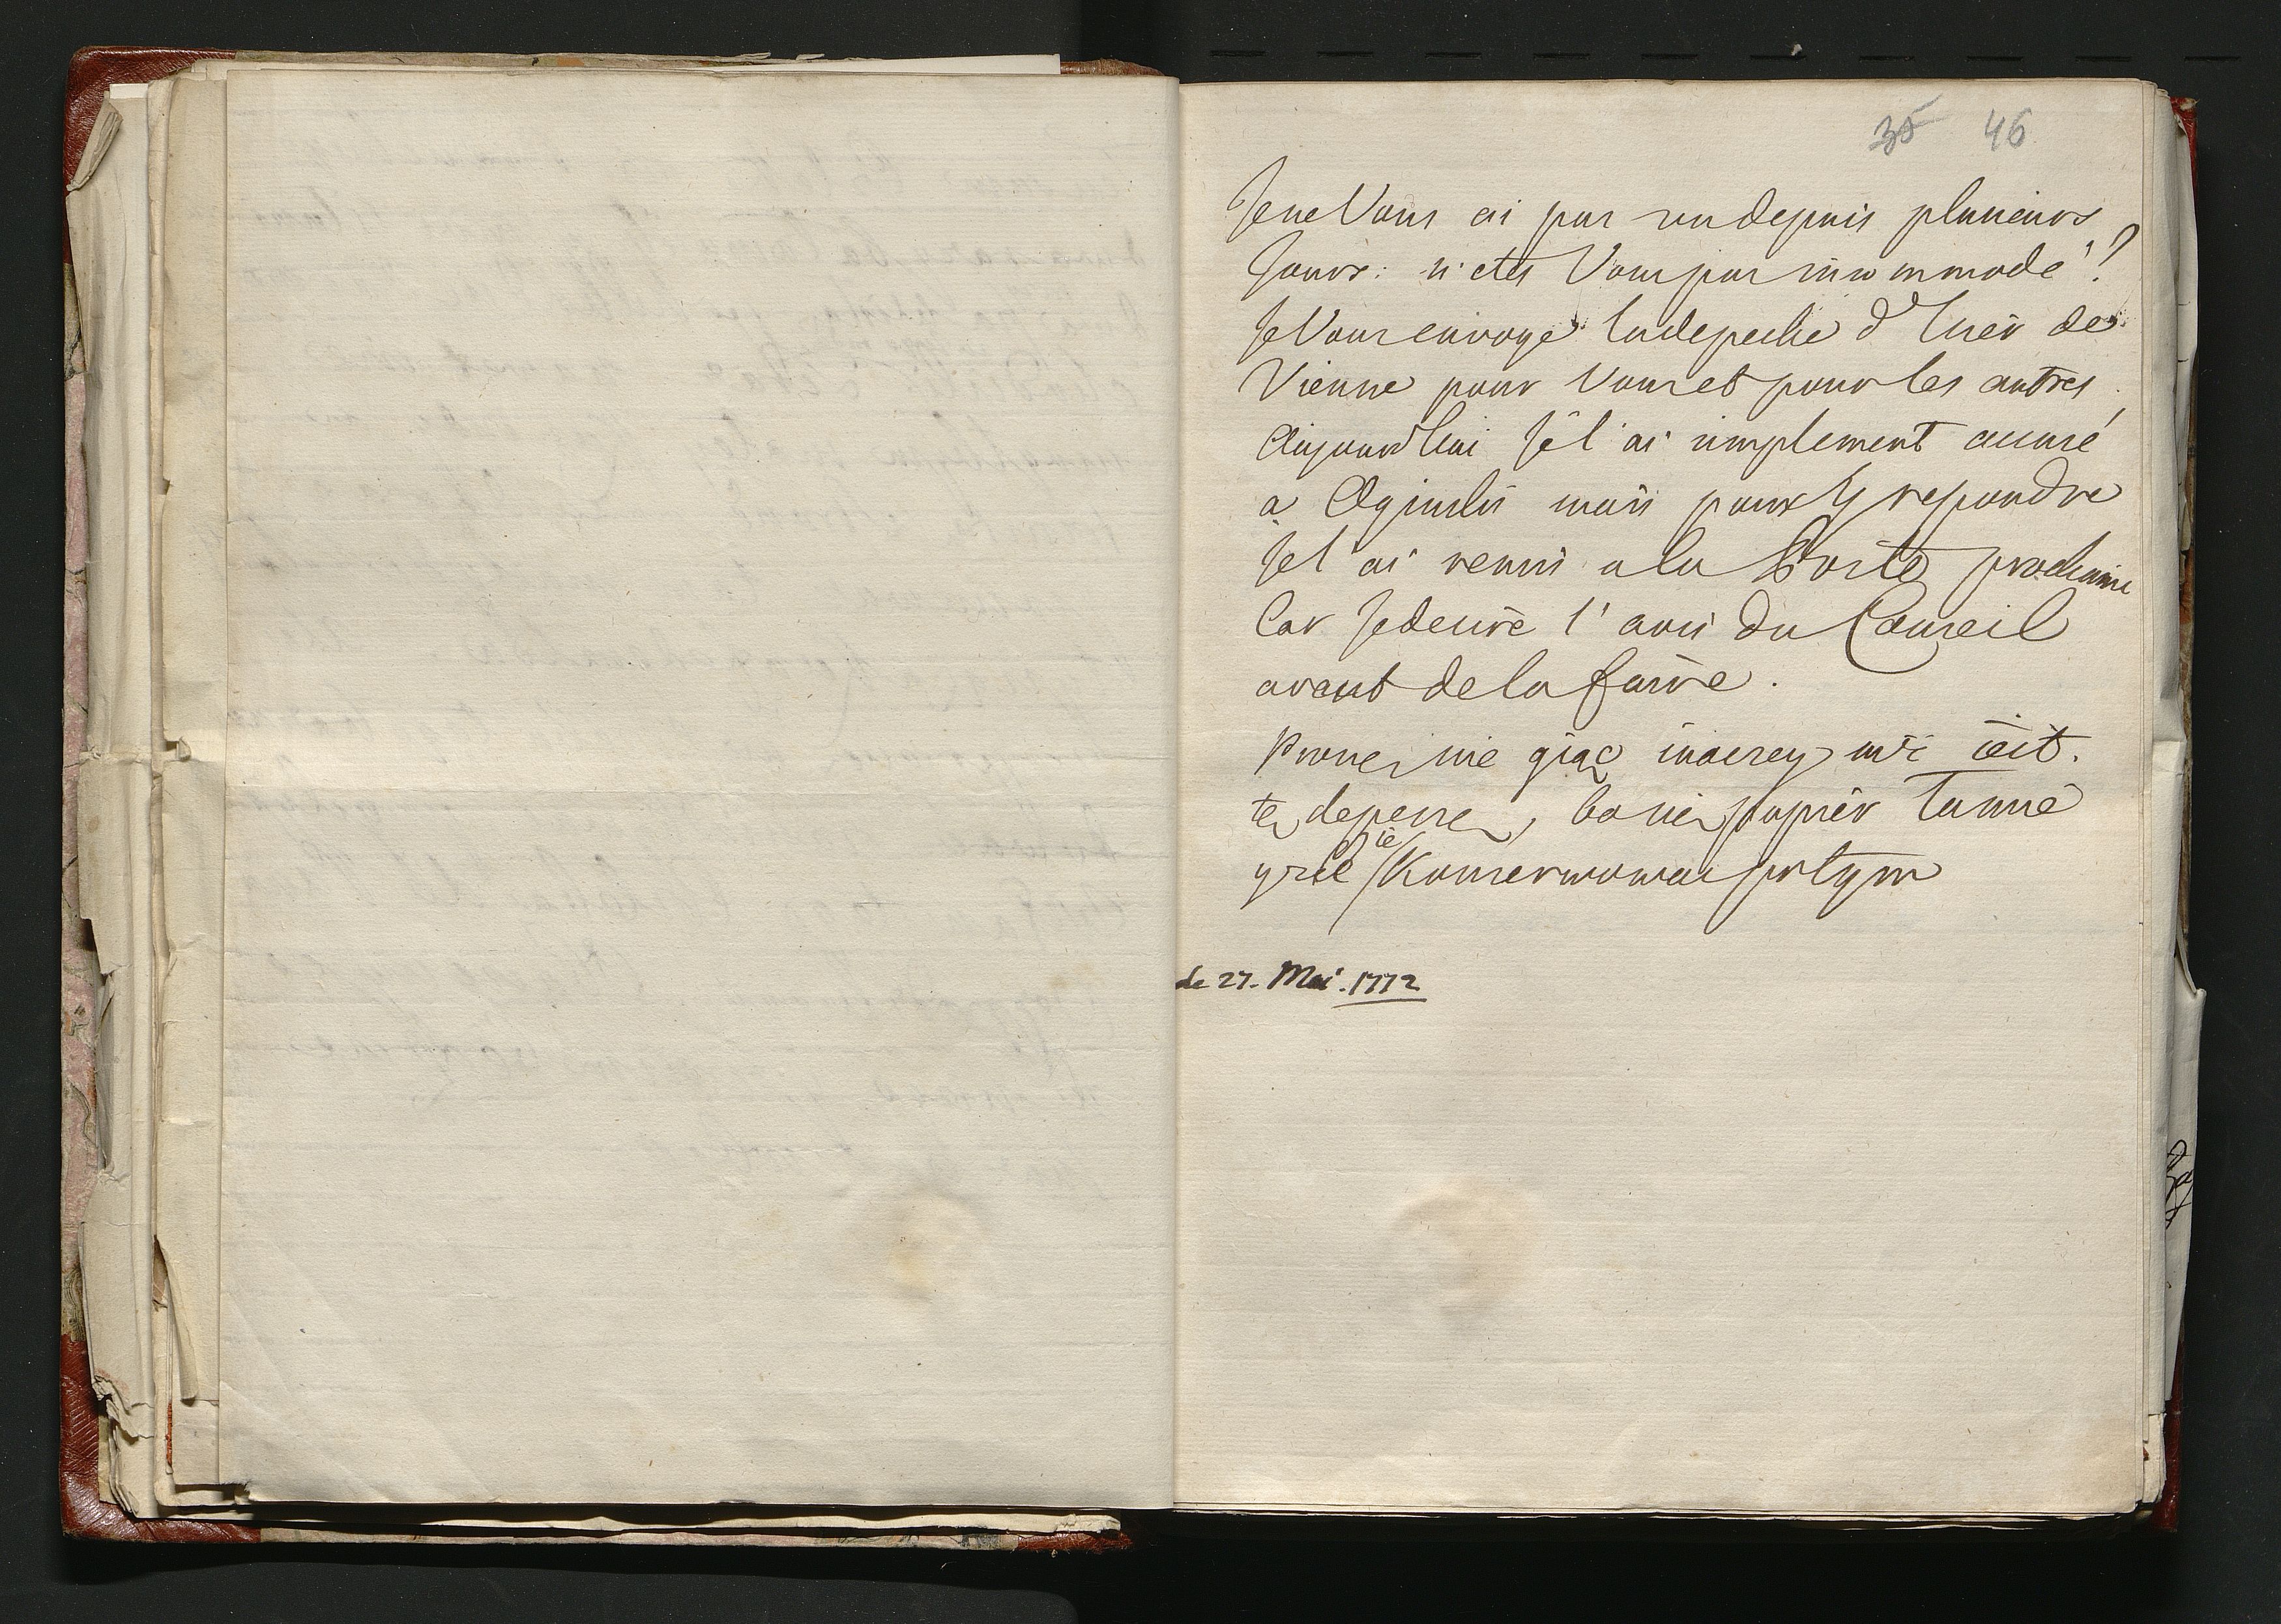 35 46
Je ne Vous ai pas vu depuis plusieurs
Jours: n'etes Vous pas incommodé?
Je Vous envoye la depeche d'hier de
Vienne pour Vous et pour les autres.
Aujourdhui Je l'ai simplement accusé
a Oginski mais pour y repondre
Je l'ai remis a la Poste prochaine
Car Je desire l'avis du Conseil
avant de la faire.
Proszę mie
tę depeszę, bo ten papier
y zle się Konserwował przytym
de 27. Mai. 1772